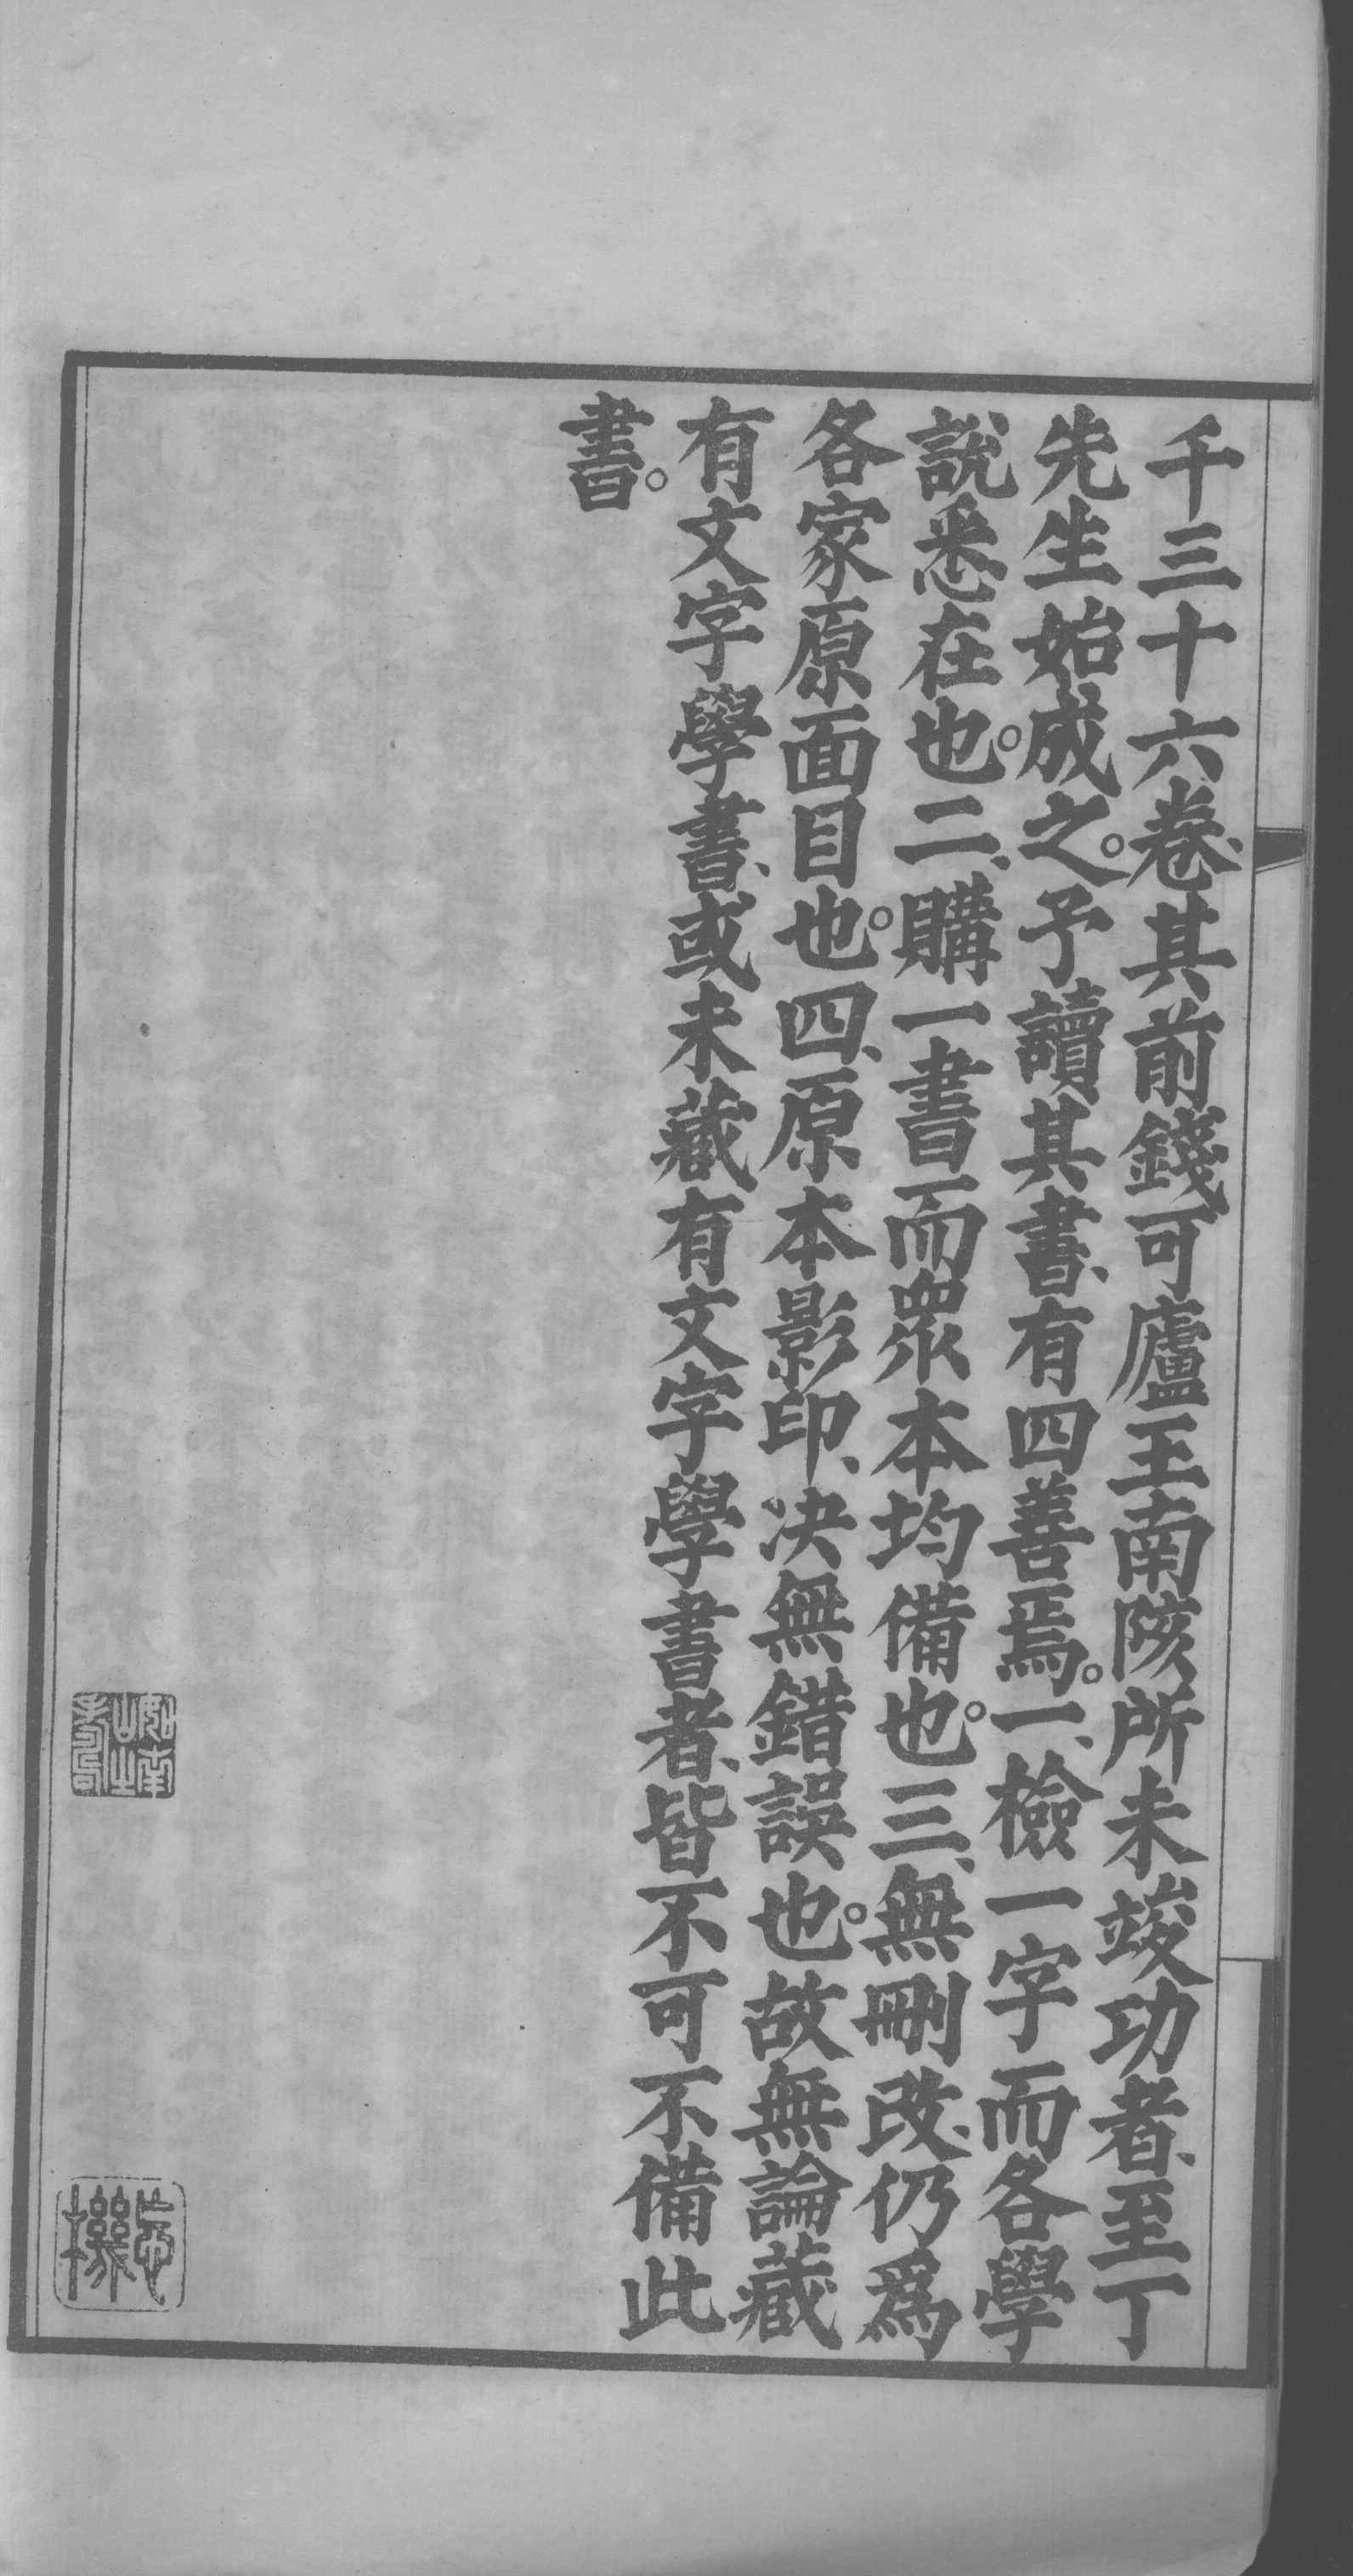 千三十六卷、其前錢可廬王南陔所未竣功者、至丁
先生始成之。予讀其書、有四善焉。一、檢一字而各學
說悉在也。二、購一書而眾本均備也。三、無刪改、仍爲
各家原面目也。四、原本影印、决無錯誤也。故無論藏
有文字學書、或未藏有文字學書者、皆不可不備此
書。